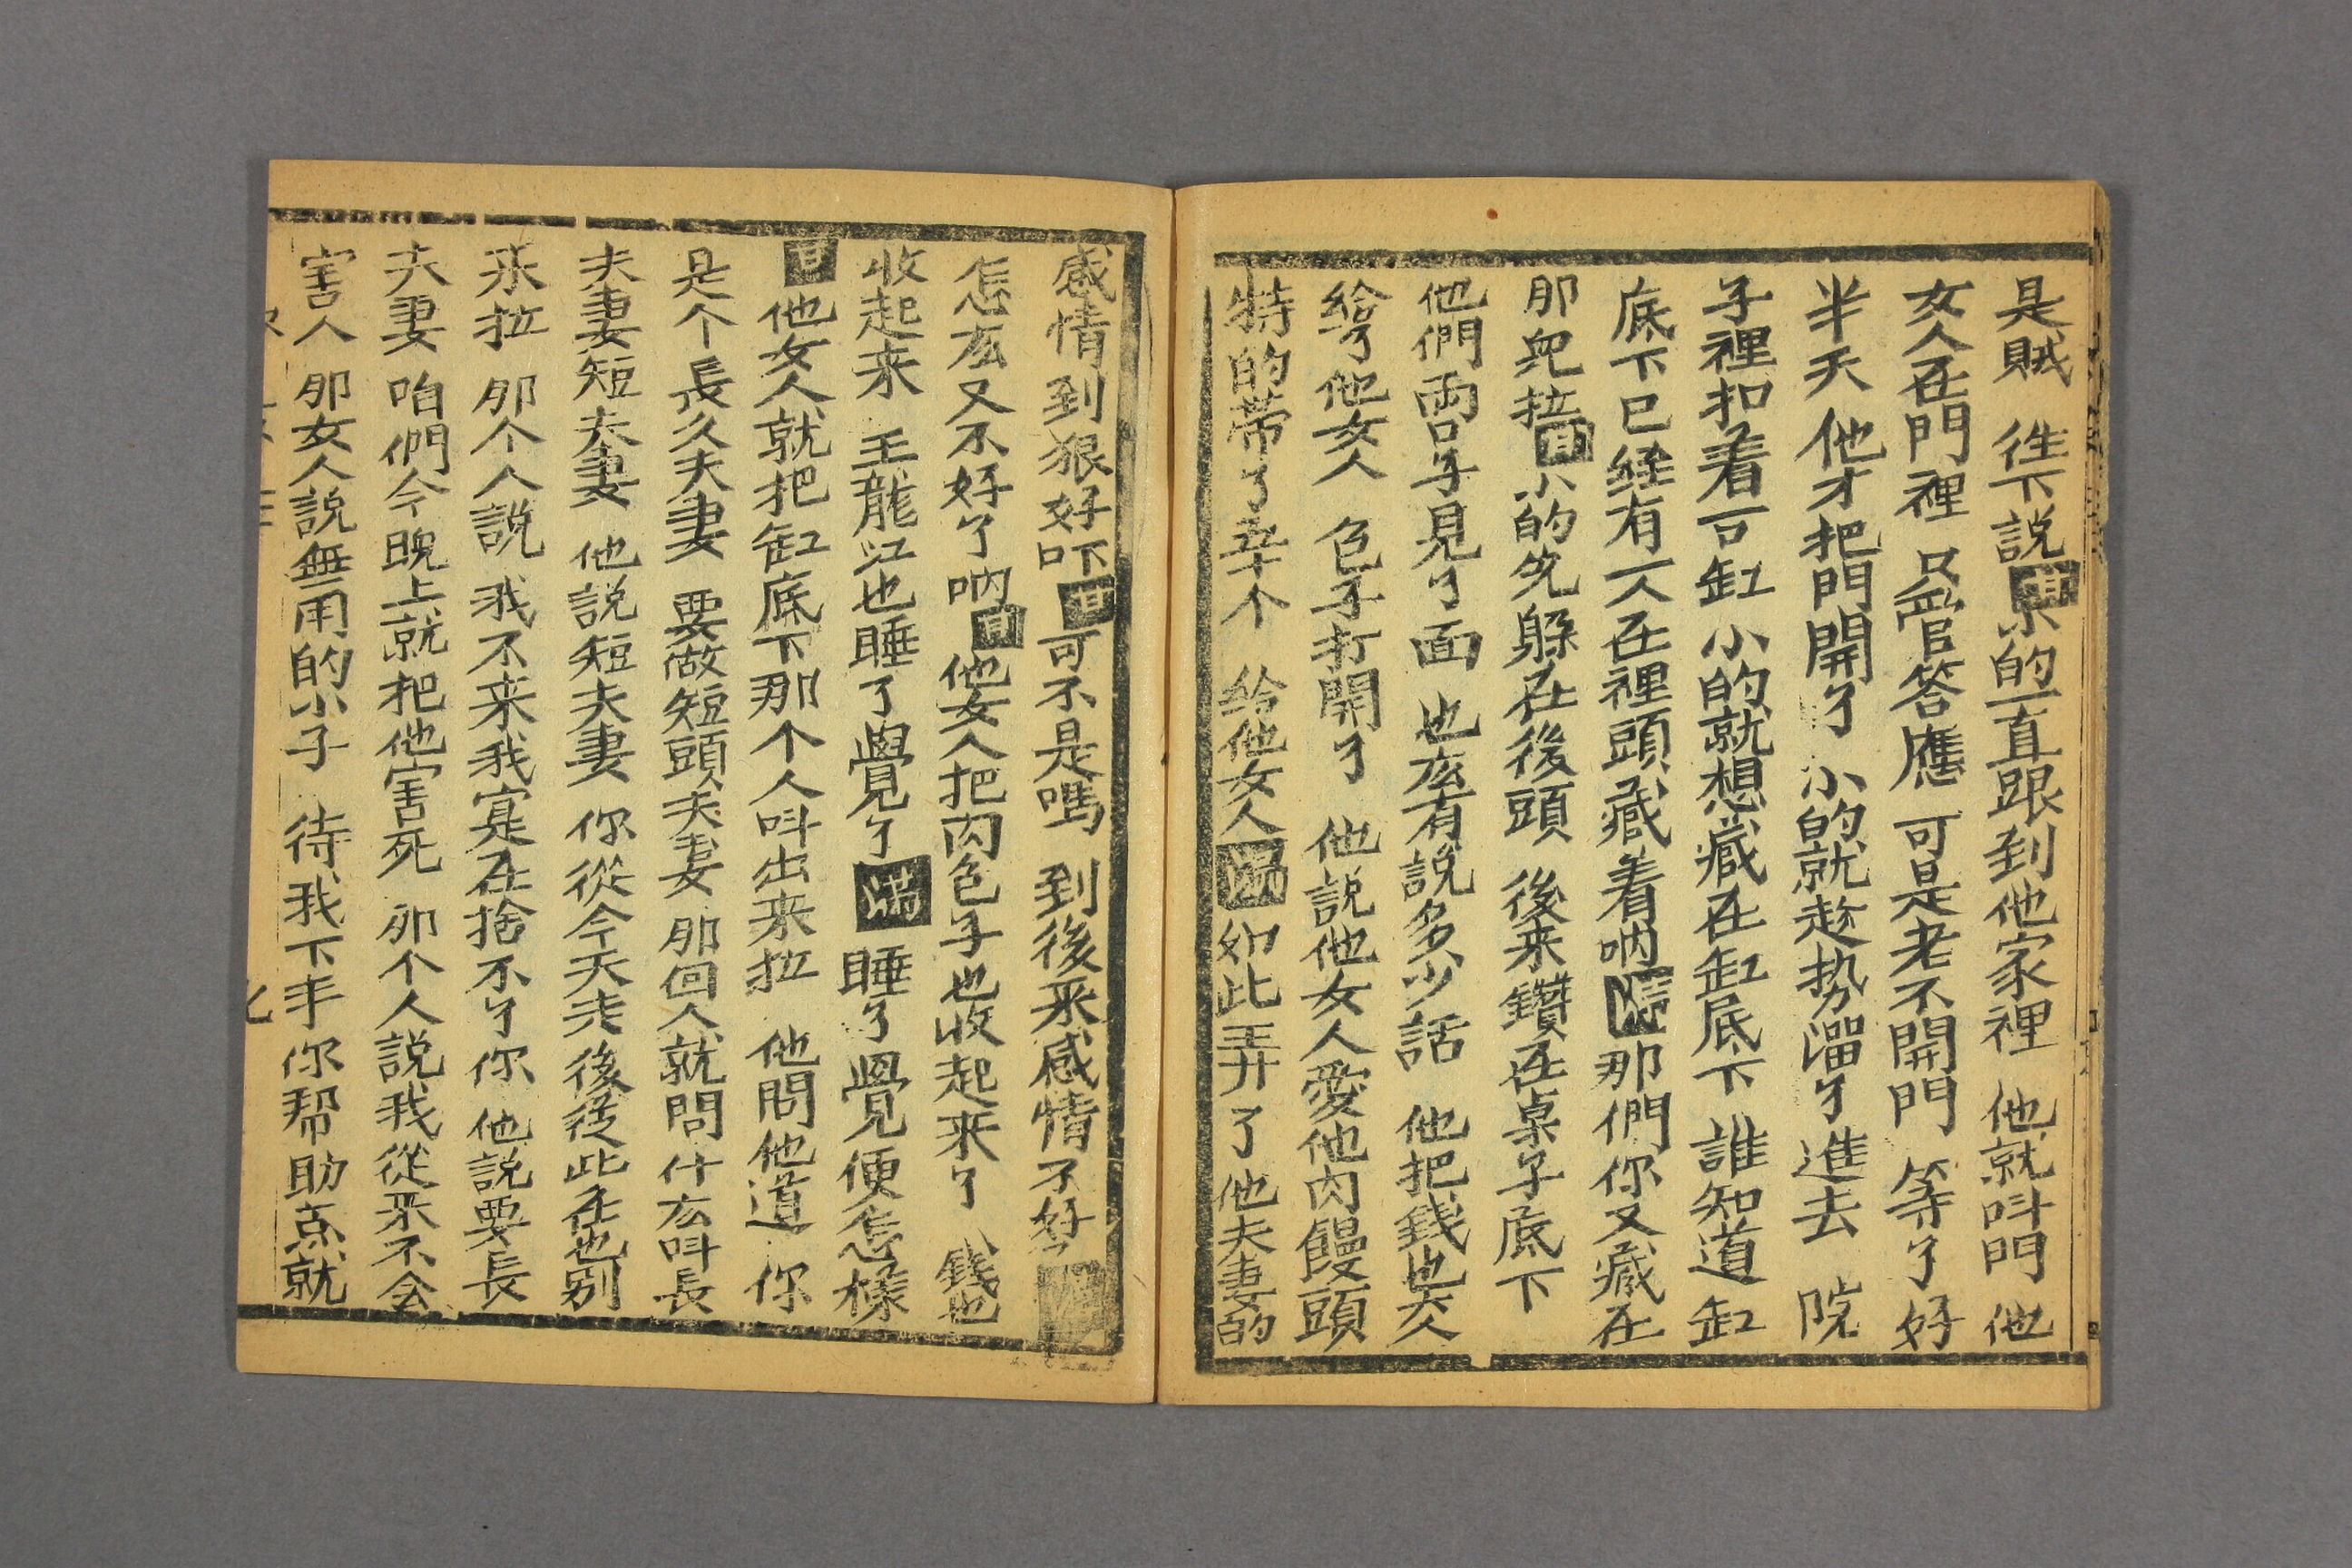 是賊 徃下説 小的一直跟到他家裡 他就呌門 他
女人在門裡 只管答應 可是老不開門 等了好
半天 他才把門開了 小的就趁势溜了進去 院
子裡扣着一可缸 小的就想藏在缸底下 誰知道缸
底下已経有一人在裡頭藏着吶 那們你又藏在
那兒拉 小的先躱在後頭 後来鑽在桌子底下
他們両口子見了面 也庅有説多少話 他把銭也交
給了他女人 包子打開了 他説他女人愛他肉饅頭
特的帯了幸个 给他女人 如此弄了他夫妻的
感情到狠好吓 可不是嗎 到後来感情不好
怎庅又不好了吶 他女人把肉包子也收起来了 銭也
收起来 王龍江也睡了覺了 满 睡了覺便怎様
他女人就把缸底下那个人呌出来拉 他問他道 你
是个長久夫妻 要做短頭夫妻 那回人就問什庅呌長
夫妻短夫妻 他説短夫妻 你從今天走後從此在也别
来拉 那个人説 我不来我寔在捨不了你 他説要長
夫妻 咱們今晚上就把他害死 那个人説我從来不会
害人 那女人説無用的小子 待我下手你帮助点就